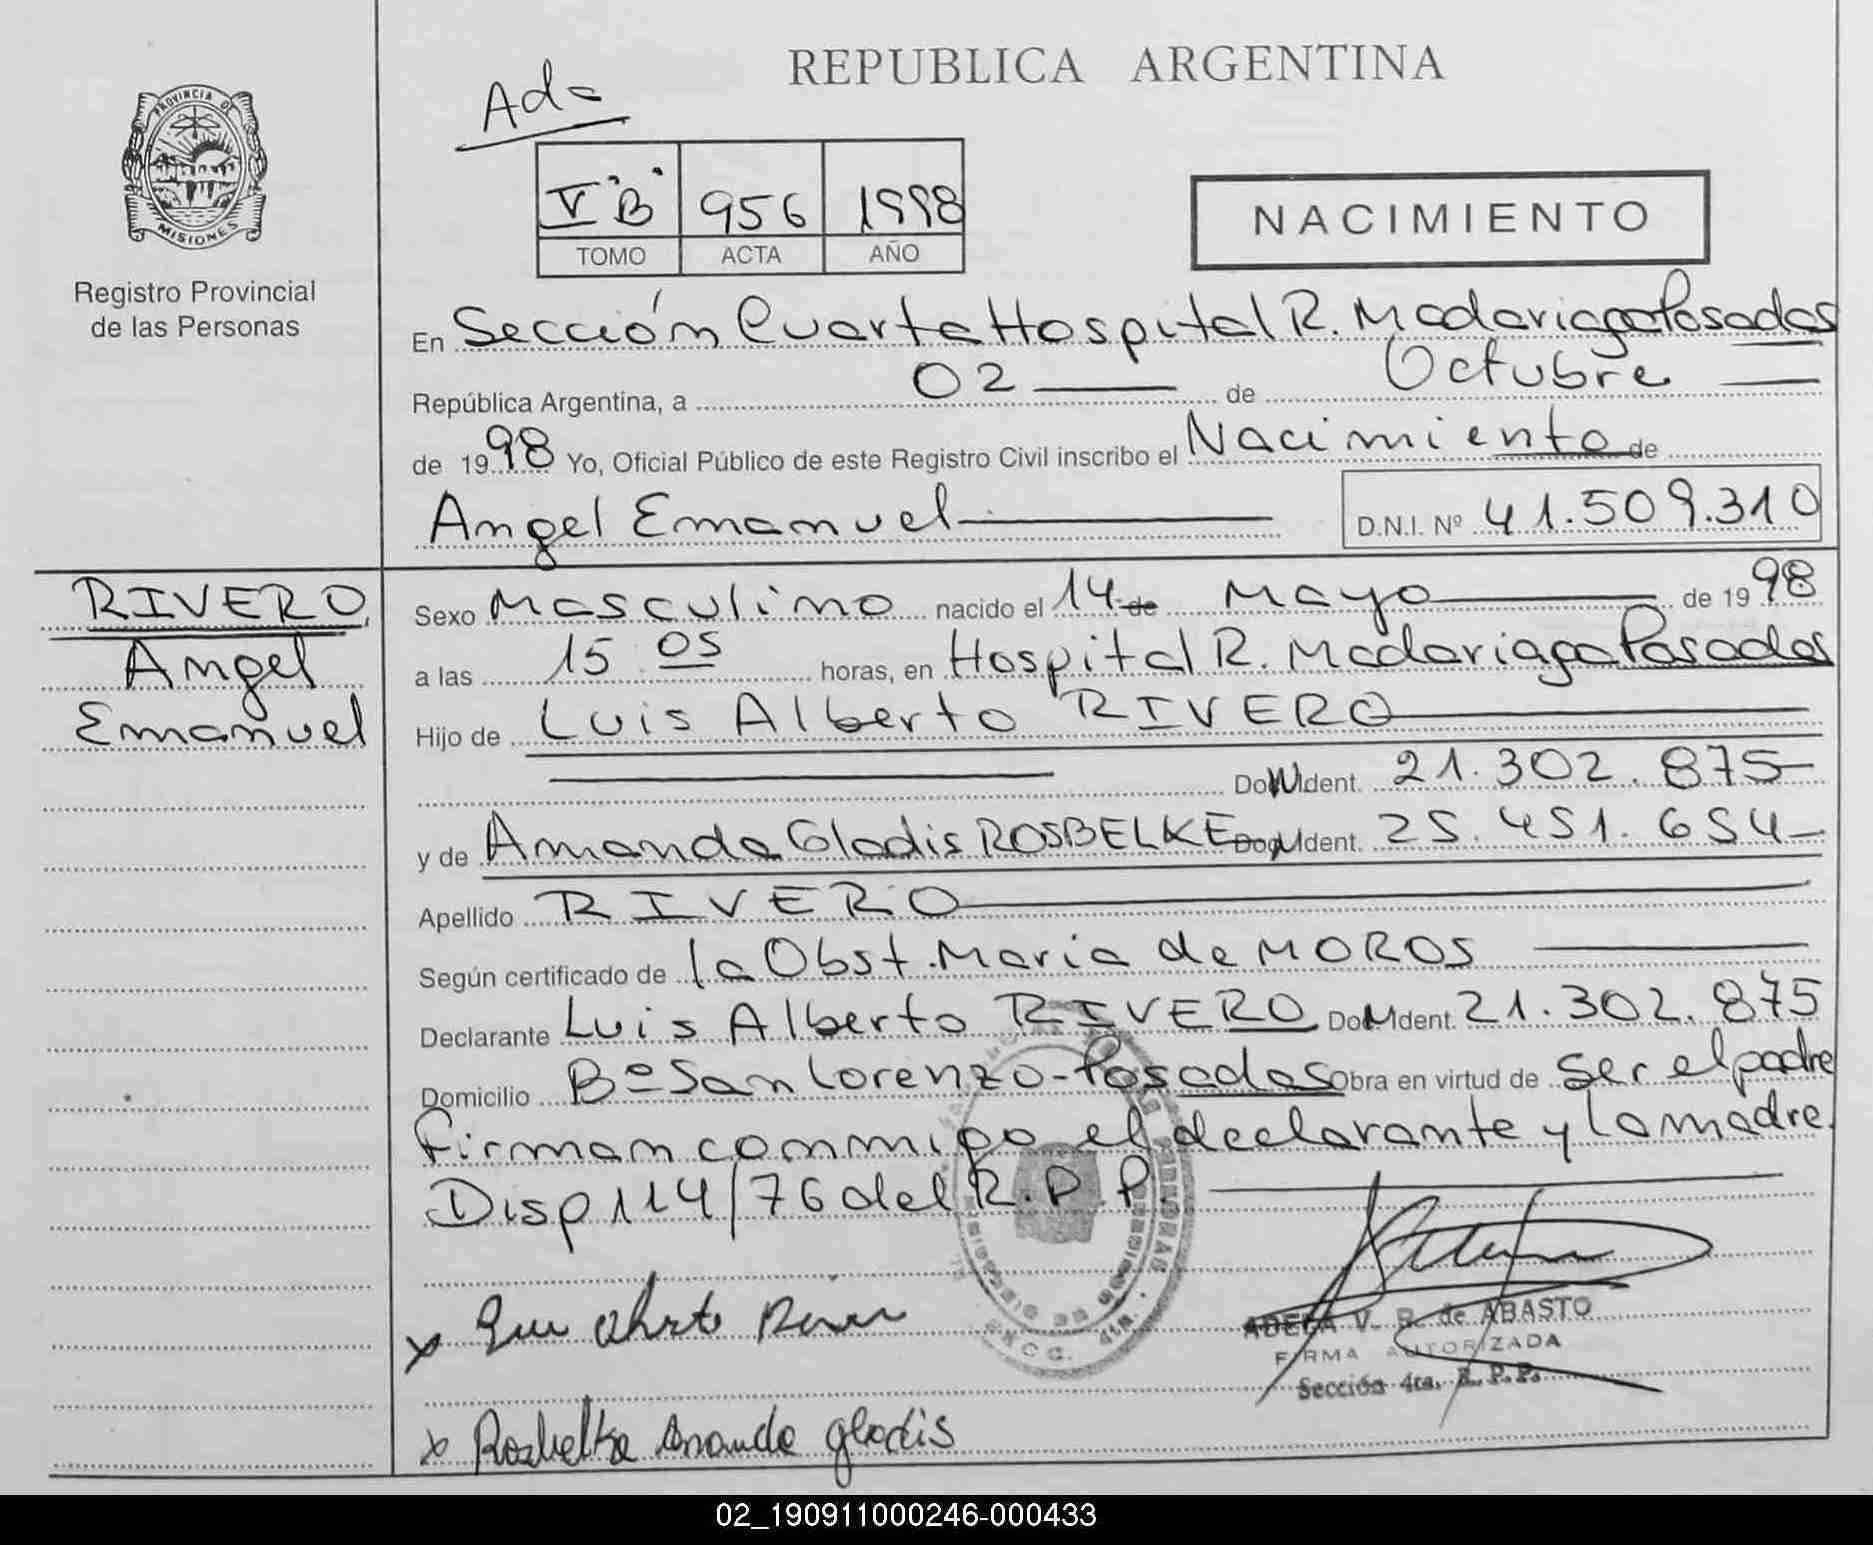 REPUBLICA ARGENTINA
Ada
V "B" 956 1998
TOMO ACTA AÑO
NACIMIENTO
PROVINCIA DE
MISIONES
Registro Provincial
de las Personas
En Sección Cuarta Hospital R. Madariaga Posadas
República Argentina, a 02 de Octubre
de 1998 Yo, Oficial Público de este Registro Civil inscribo el Nacimiento de
Angel Emanuel D.N.I. Nº 41.509.310
RIVERO
Angel
Emanuel
Sexo Masculino nacido el 14 de Mayo de 1998
a las 15 05 horas, en Hospital R. Madariaga Posadas
Hijo de Luis Alberto RIVERO
Ident. 21.302.875
y de Amanda Gladis ROSBELKE Ident. 25.451.654
Apellido RIVERO
Según certificado de la Obst. Maria de MOROS
Declarante Luis Alberto RIVERO Ident. 21.302.875
Domicilio Bº San Lorenzo - Posadas Obra en virtud de ser el padre
Firman conmigo el declarante y la madre.
Disp 114/76 del R.P.P.
x
ADELA V. R. de ABASTO
FIRMA AUTORIZADA
Sección 4ta. R. P. P.
x Rosbelke Amanda gladis
02_190911000246-000433